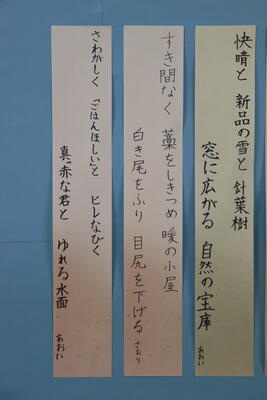 快晴と 新品の雪と 針葉樹
窓に広がる 自然の宝庫
あおい
すき間なく 藁をしきつめ 暖の小屋
白き尾をふり 目尻を下げる
さおり
さわがしく 「ごはんほしい」と ヒレなびく
真っ赤な君と ゆれる水面
あおい